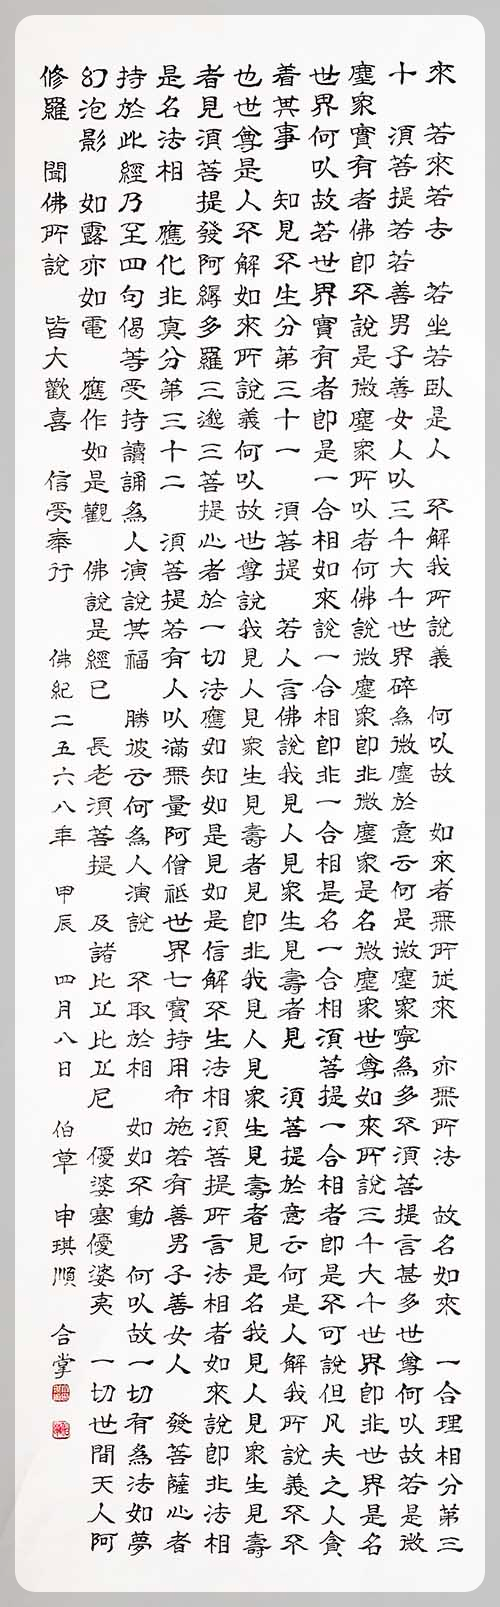 來 若來若去 若坐若臥是人 不解我所說義 何以故 如來者無所從來 亦無所法 故名如來 一合理相分第三
十 須菩提若若善男子善女人以三千大千世界碎為微塵於意云何是微塵眾寧為多不須菩提言甚多世尊何以故若是微
塵眾實有者佛卽不說是微塵眾所以者何佛說微塵眾卽非微塵眾是名微塵眾世尊如來所說三千大千世界卽非世界是名
世界何以故若世界實有者卽是一合相如來說一合相卽非一合相是名一合相須菩提一合相者卽是不可說但凡夫之人貪
着其事 知見不生分第三十一 須菩提 若人言佛說我見人見眾生見壽者見 須菩提於意云何是人解我所說義不不
也世尊是人不解如來所說義何以故世尊說我見人見眾生見壽者見卽非我見人見眾生見壽者見是名我見人見眾生見壽
者見須菩提發阿縟多羅三邈三菩提心者於一切法應如知如是見如是信解不生法相須菩提所言法相者如來說卽非法相
是名法相 應化非真分第三十二 須菩提若有人以滿無量阿僧祗世界七寶持用布施若有善男子善女人 發菩薩心者
持於此經乃至四句偈等受持讀誦為人演說其福 勝彼云何為人演說 不取於相 如如不動 何以故一切有為法如夢
幻泡影 如露亦如電 應作如是觀 佛說是經已 長老須菩提 及諸比丘比丘尼 優婆塞優婆夷 一切世間天人阿
修羅 聞佛所說 皆大歡喜 信受奉行 佛紀二五六八年 甲辰 四月八日 伯草 申琪順 合掌